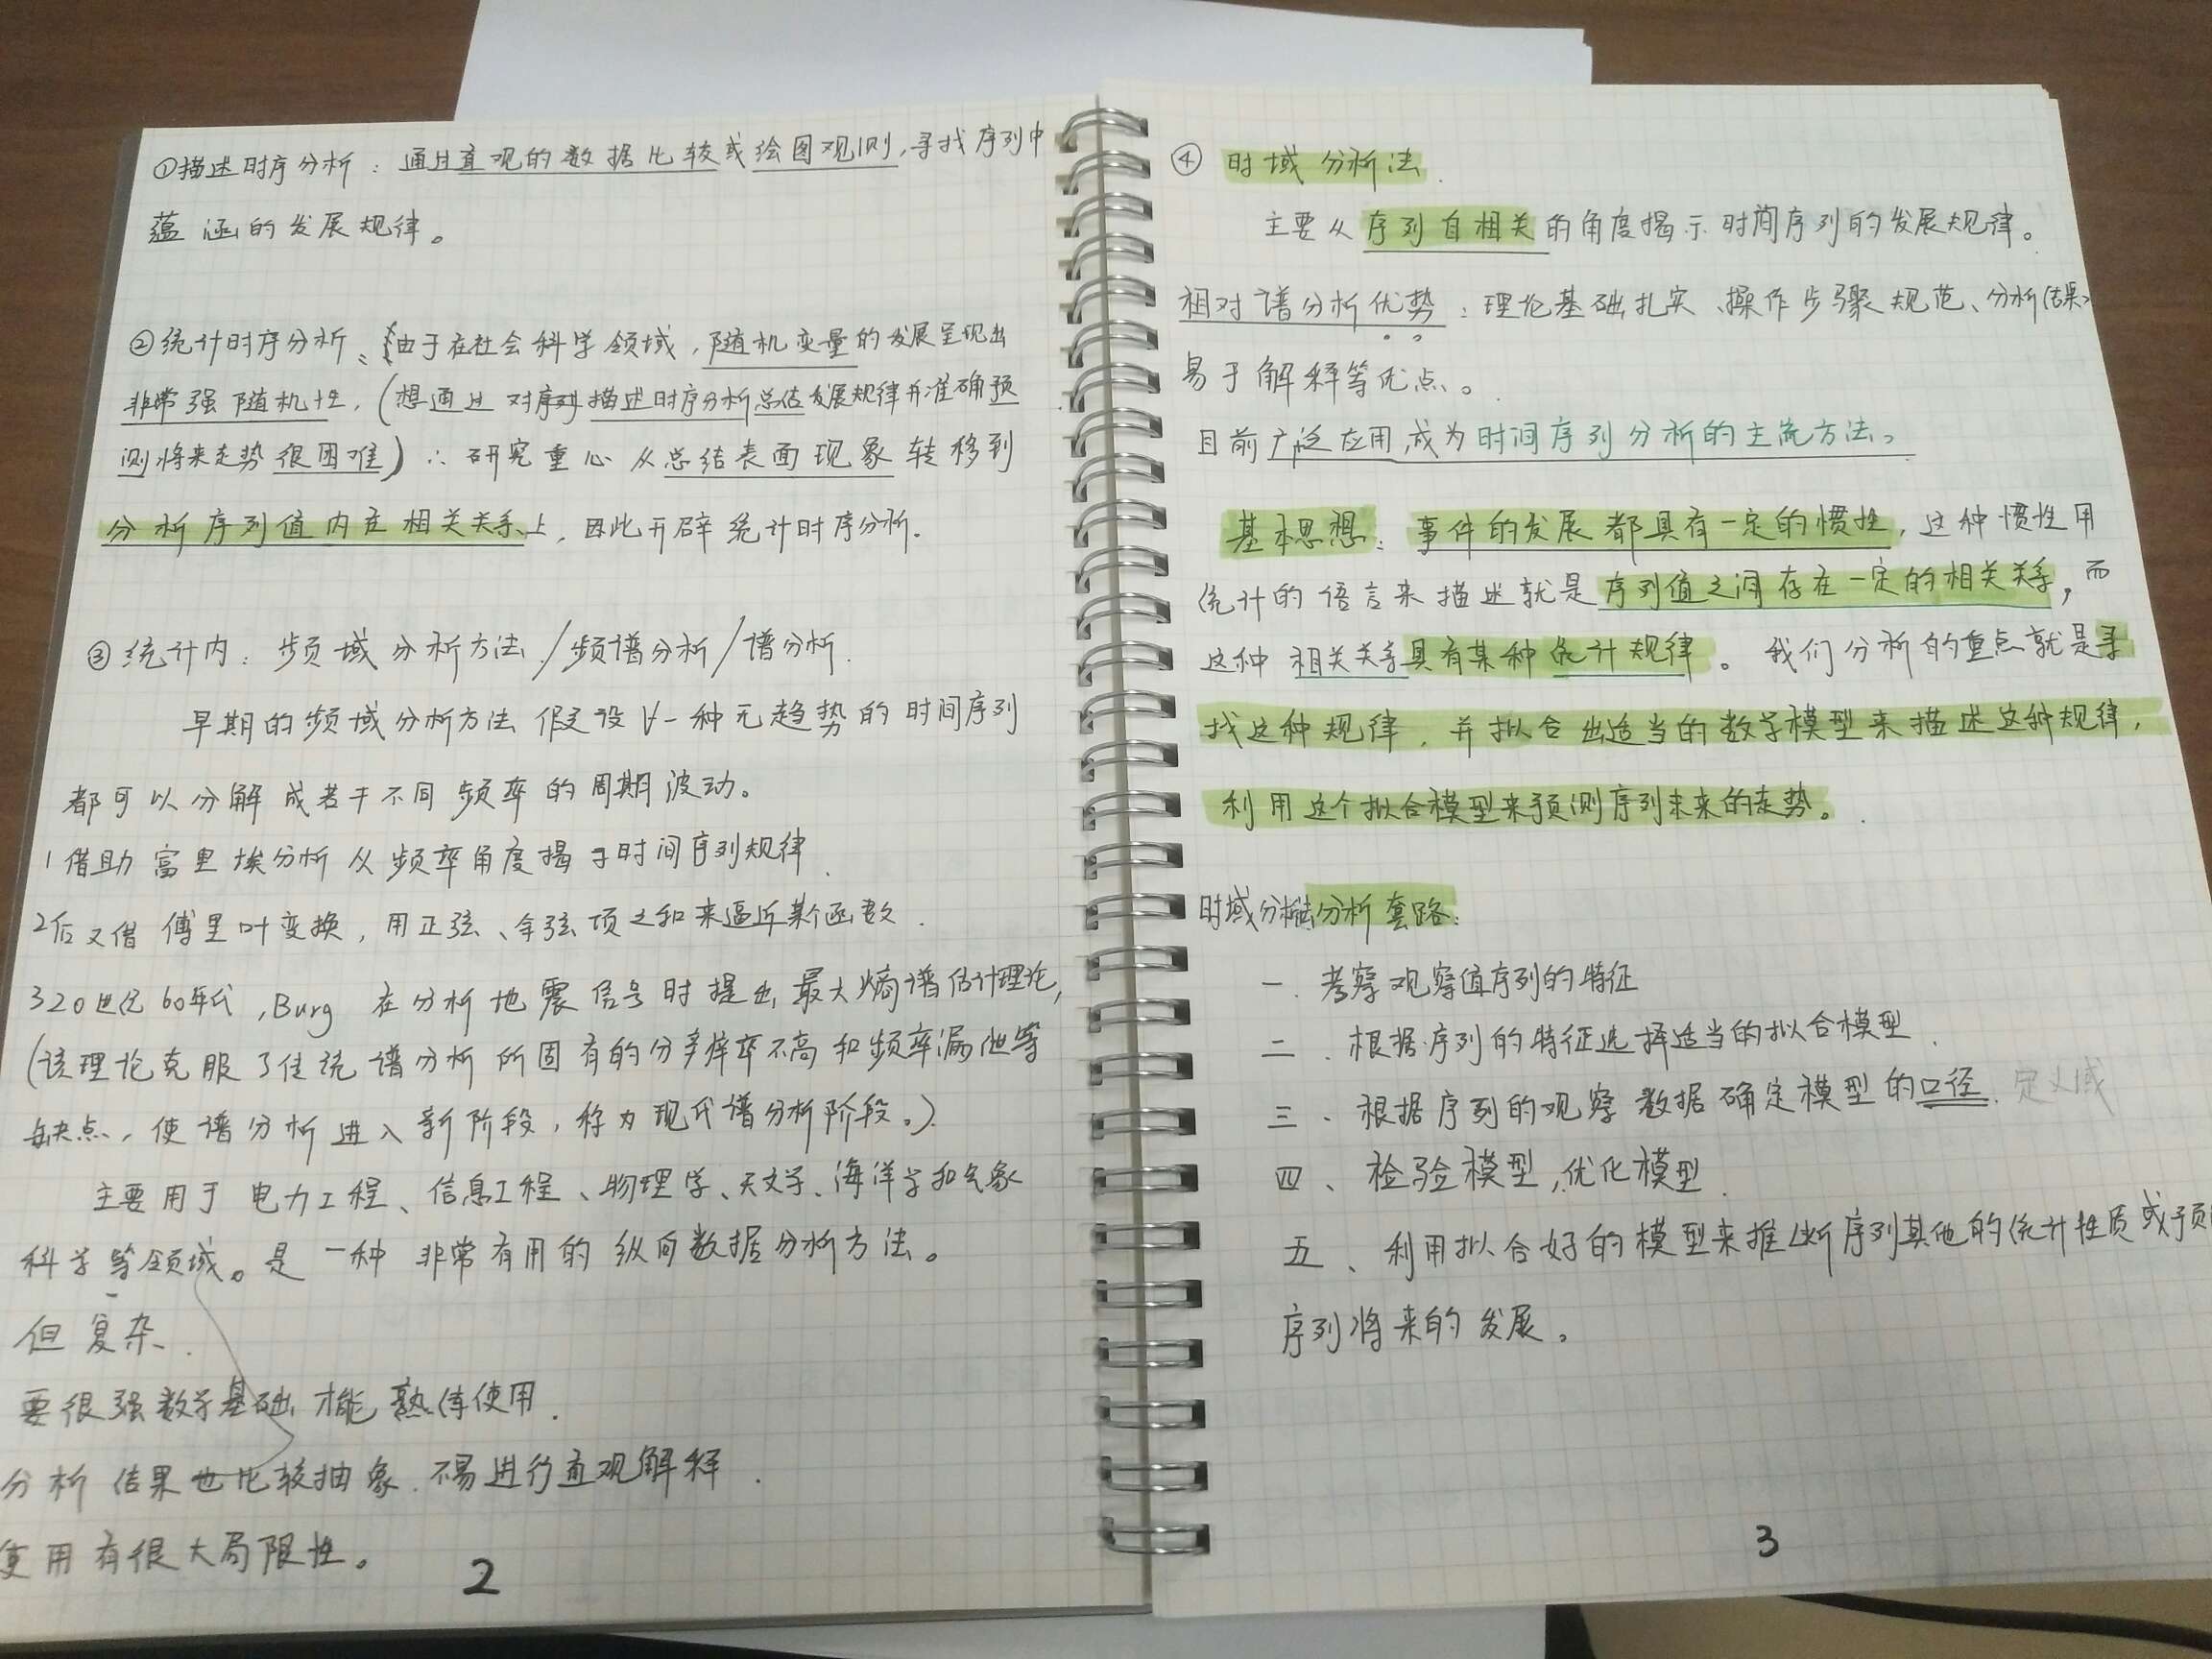 ①描述时序分析：通过直观的数据比较或绘图观测，寻找序列中
蕴涵的发展规律。
②统计时序分析：由于在社会科学领域，随机变量的发展呈现出
非常强随机性，（想通过对序列描述时序分析总结发展规律并准确预
测将来走势很困难）∴研究重心从总结表面现象转移到
分析序列值内在相关关系上，因此开辟统计时序分析.
③统计内：频域分析方法/频谱分析/谱分析.
早期的频域分析方法假设∀一种无趋势的时间序列
都可以分解成若干不同频率的周期波动。
1借助富里埃分析从频率角度揭示时间序列规律.
2后又借傅里叶变换，用正弦、余弦项之和来逼近某个函数.
3 20世纪60年代，Burg 在分析地震信号时提出最大熵谱估计理论，
（该理论克服了传统谱分析所固有的分辨率不高和频率漏泄等
缺点，使谱分析进入新阶段，称为现代谱分析阶段。）
主要用于电力工程、信息工程、物理学、天文学、海洋学和气象
科学等领域。是一种非常有用的纵向数据分析方法。
但复杂.
要很强数学基础才能熟练使用.
分析结果也比较抽象.不易进行直观解释.
使用有很大局限性。
2
④ 时域分析法.
主要从序列自相关的角度揭示时间序列的发展规律。
相对谱分析优势：理论基础扎实、操作步骤规范、分析结果
易于解释等优点。
目前广泛应用，成为时间序列分析的主流方法。
基本思想：事件的发展都具有一定的惯性，这种惯性用
统计的语言来描述就是序列值之间存在一定的相关关系，而
这种相关关系具有某种统计规律。我们分析的重点就是寻
找这种规律，并拟合出适当的数学模型来描述这种规律，
利用这个拟合模型来预测序列未来的走势。
时域分析法分析套路：
一.考察观察值序列的特征
二.根据序列的特征选择适当的拟合模型.
三、根据序列的观察数据确定模型的口径.定义域
四、检验模型，优化模型.
五、利用拟合好的模型来推断序列其他的统计性质或预
序列将来的发展。
3